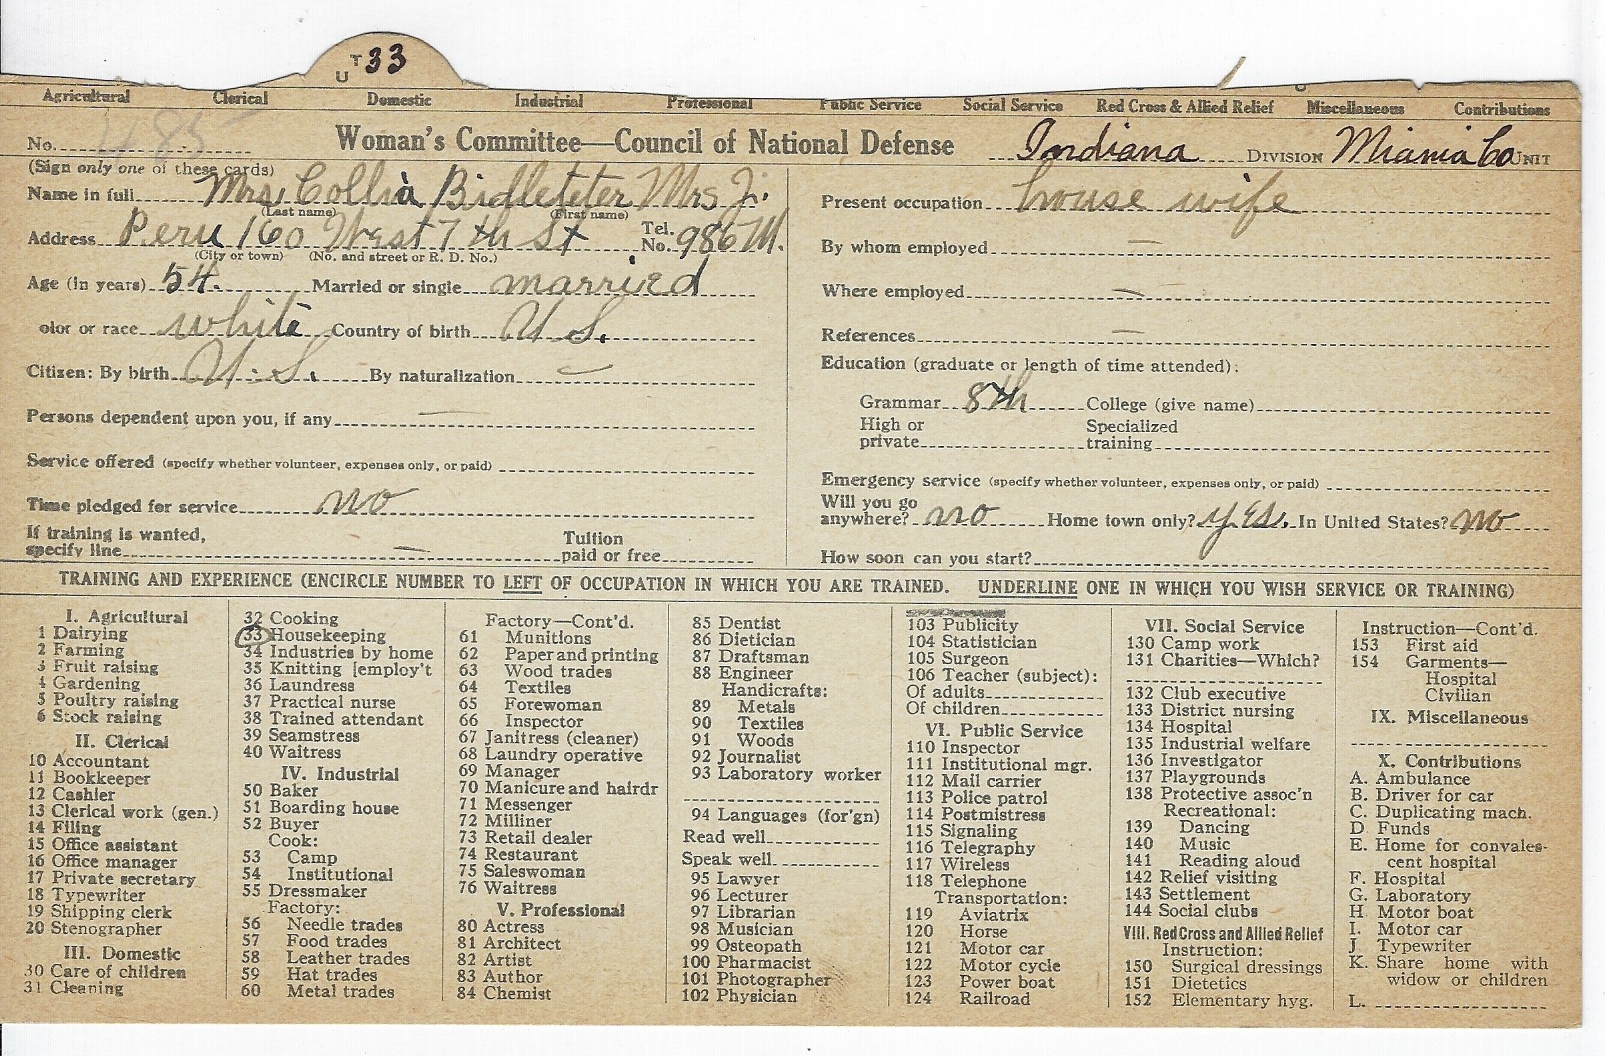 T
U 33
Agricultural Clerical Domestic Industrial Professional Public Service Social Service Red Cross & Allied Relief Miscellaneous Contributions
No. 485
Woman's Committee—Council of National Defense Indiana DIVISION Miania Co UNIT
(Sign only one of these cards)
Name in full Mrs. Collia Bidleteter Mrs J.
(Last name) (First name)
Address Peru 160 West 7th St Tel. No. 986 M.
(City or town) (No. and street or R. D. No.)
Age (in years) 54. Married or single married
olor or race white Country of birth U S.
Citizen: By birth U. S. By naturalization —
Persons dependent upon you, if any —
Service offered (specify whether volunteer, expenses only, or paid)
Time pledged for service no
If training is wanted,
specify line — Tuition paid or free
Present occupation house wife
By whom employed —
Where employed —
References —
Education (graduate or length of time attended):
Grammar 8th College (give name)
High or private Specialized training
Emergency service (specify whether volunteer, expenses only, or paid)
Will you go
anywhere? no Home town only? yes. In United States? no
How soon can you start?
TRAINING AND EXPERIENCE (ENCIRCLE NUMBER TO LEFT OF OCCUPATION IN WHICH YOU ARE TRAINED. UNDERLINE ONE IN WHICH YOU WISH SERVICE OR TRAINING)
I. Agricultural
1 Dairying
2 Farming
3 Fruit raising
4 Gardening
5 Poultry raising
6 Stock raising
II. Clerical
10 Accountant
11 Bookkeeper
12 Cashier
13 Clerical work (gen.)
14 Filing
15 Office assistant
16 Office manager
17 Private secretary
18 Typewriter
19 Shipping clerk
20 Stenographer
III. Domestic
30 Care of children
31 Cleaning
32 Cooking
33 Housekeeping
34 Industries by home
35 Knitting [employ't
36 Laundress
37 Practical nurse
38 Trained attendant
39 Seamstress
40 Waitress
IV. Industrial
50 Baker
51 Boarding house
52 Buyer
Cook:
53 Camp
54 Institutional
55 Dressmaker
Factory:
56 Needle trades
57 Food trades
58 Leather trades
59 Hat trades
60 Metal trades
Factory—Cont'd.
61 Munitions
62 Paper and printing
63 Wood trades
64 Textiles
65 Forewoman
66 Inspector
67 Janitress (cleaner)
68 Laundry operative
69 Manager
70 Manicure and hairdr
71 Messenger
72 Milliner
73 Retail dealer
74 Restaurant
75 Saleswoman
76 Waitress
V. Professional
80 Actress
81 Architect
82 Artist
83 Author
84 Chemist
85 Dentist
86 Dietician
87 Draftsman
88 Engineer
Handicrafts:
89 Metals
90 Textiles
91 Woods
92 Journalist
93 Laboratory worker
94 Languages (for'gn)
Read well
Speak well
95 Lawyer
96 Lecturer
97 Librarian
98 Musician
99 Osteopath
100 Pharmacist
101 Photographer
102 Physician
103 Publicity
104 Statistician
105 Surgeon
106 Teacher (subject):
Of adults
Of children
VI. Public Service
110 Inspector
111 Institutional mgr.
112 Mail carrier
113 Police patrol
114 Postmistress
115 Signaling
116 Telegraphy
117 Wireless
118 Telephone
Transportation:
119 Aviatrix
120 Horse
121 Motor car
122 Motor cycle
123 Power boat
124 Railroad
VII. Social Service
130 Camp work
131 Charities—Which?
132 Club executive
133 District nursing
134 Hospital
135 Industrial welfare
136 Investigator
137 Playgrounds
138 Protective assoc'n
Recreational:
139 Dancing
140 Music
141 Reading aloud
142 Relief visiting
143 Settlement
144 Social clubs
VIII. Red Cross and Allied Relief
Instruction:
150 Surgical dressings
151 Dietetics
152 Elementary hyg.
Instruction—Cont'd.
153 First aid
154 Garments—
Hospital
Civilian
IX. Miscellaneous
X. Contributions
A. Ambulance
B. Driver for car
C. Duplicating mach.
D. Funds
E. Home for convales-
cent hospital
F. Hospital
G. Laboratory
H. Motor boat
I. Motor car
J. Typewriter
K. Share home with
widow or children
L.